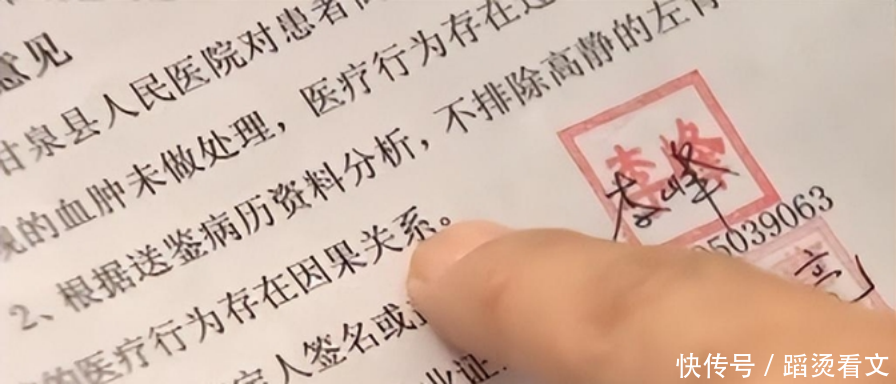 意见
甘泉县人民医院对患者
的血肿未做处理，医疗行为存在
2、根据送鉴病历资料分析，不排除高静的左肾
的医疗行为存在因果关系。
人签名或
业证
李峰
李峰
5039063
快传号 / 蹈烫看文